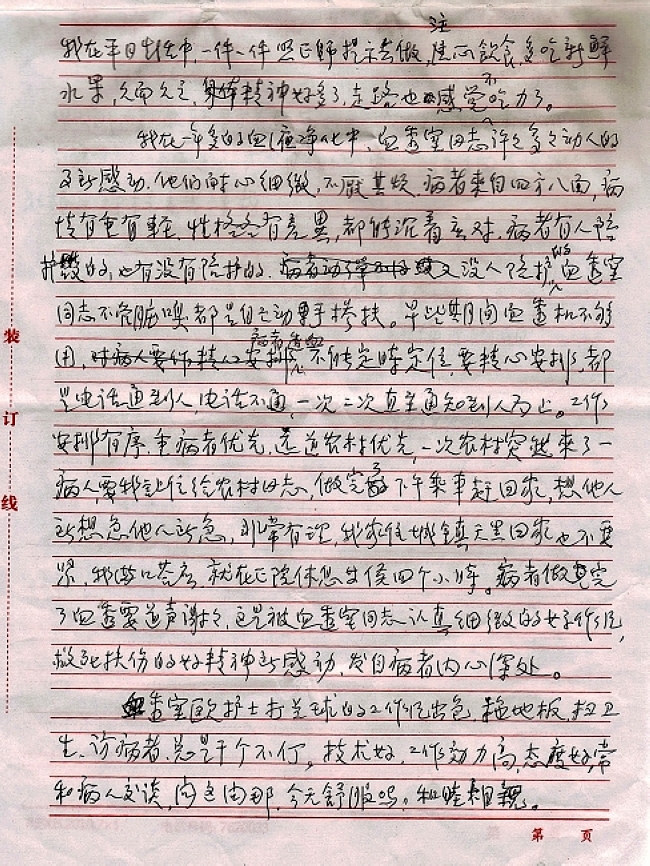 我在平日生活中,一件一件照医师提示去做,注心饮食,多吃新鲜
水果,久而久之,身体精神好多了,走路也感觉不吃力了。
我在一年多的血液净化中,血透室同志许许多多动人的
所感动,他们耐心细微,不厌其烦,病者来自四方八面,病
情有重有轻,性格各有差异,都能沉着应对,病者有人陪
护的,也有没有陪护的,又没人陪护的血透室
同志不危脏嗅都是自己动手搀扶。早些期间血透机不够
用,病者透血不能定时定位,要精心安排,都
是电话通到人,电话不通,一次二次直至通知到人为止。工作
安排有序,重病者优先,远道农村优先,一次农村突然来了一
病人要我让位给农村同志,做完了下午乘车赶回家,想他人
所想急他人所急,非常有理,我家住城镇天黑回家也不要
紧,我满口答应,就在医院休息坐候四个小时。病者做完
了血透要道声谢谢,这是被血透室同志认真细微的好作风,
救死扶伤的好精神所感动,发自病者内心深处。
血透室欧护士打全球的工作很出色,拖地板,扫卫
生,访病者,总是干个不停。技术好,工作效力高,态度好,常
和病人交谈,问这问那,今天舒服吗。和睦相亲。
装
订
线
第 页